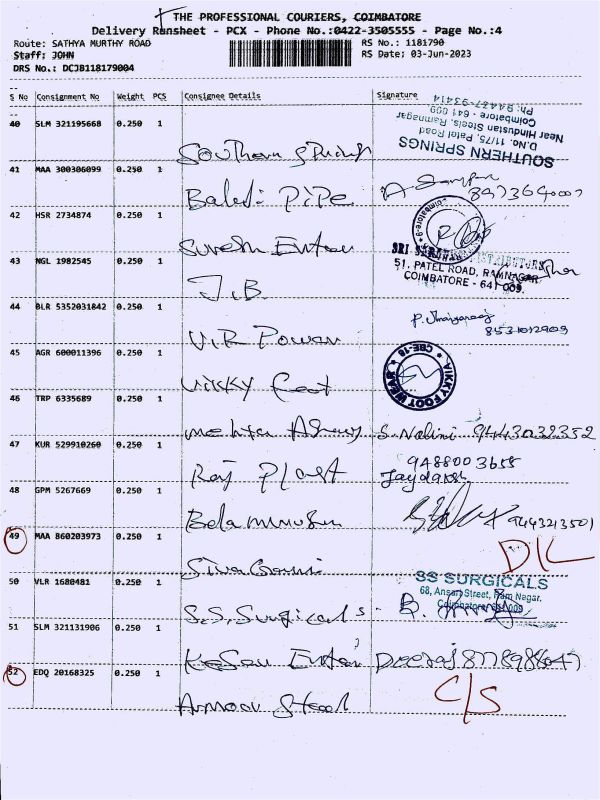 THE PROFESSIONAL COURIERS, COIMBATORE
Delivery Runsheet - PCX - Phone No.:0422-3505555 - Page No.:4
Route: SATHYA MURTHY ROAD
RS No.: 1181790
Staff: JOHN
RS Date: 03-Jun-2023
DRS No.: DCJB118179004
S No Consignment No Weight PCS Consignee Details Signature
40 SLM 321195668 0.250 1
Southern Springs
SOUTHERN SPRINGS
D.No. 11/75, Patel Road
Near Hindustan Steels, Ramnagar
Coimbatore - 641 009.
Ph: 94437-93414
41 MAA 300306099 0.250 1
Pipe
42 HSR 2734874 0.250 1
Suresh Enter
43 NGL 1982545 0.250 1
J.B.
SRI
51, PATEL ROAD, RAMNAGAR
COIMBATORE - 641 009.
44 BLR 5352031842 0.250 1
V.R Power
45 AGR 600011396 0.250 1
Vikky Foot
VIKKY FOOT WEAR
CBE-18
46 TRP 6335689 0.250 1
Mehta S. Nalini 9443032352
47 KUR 529910260 0.250 1
Raj Plast 9488003655
48 GPM 5267669 0.250 1
9443213501
49 MAA 860203973 0.250 1
D/L
50 VLR 1680481 0.250 1
S.S. Surgicals
SS SURGICALS
68, Ansari Street, Ram Nagar,
Coimbatore - 641 009
51 SLM 321131906 0.250 1
Kesav Enter
52 EDQ 20168325 0.250 1
Steel C/S